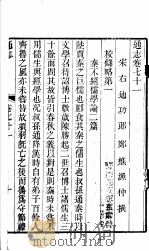 通志卷七十一
宋右迪功郎鄭樵漁仲撰
校讎略第一
秦不絕儒學論二篇
陸賈秦之巨儒也酈食其秦之儒生也叔孫通秦時以
文學召待詔博士數歲陳勝起二世召博士諸儒生三
十餘人而問其故皆引春秋之義以對是則秦時未嘗不
用儒生與經學也況叔孫通降漢時自有弟子百餘人
齊魯之風亦未嘗替故項羽既亡之後而魯為守節禮